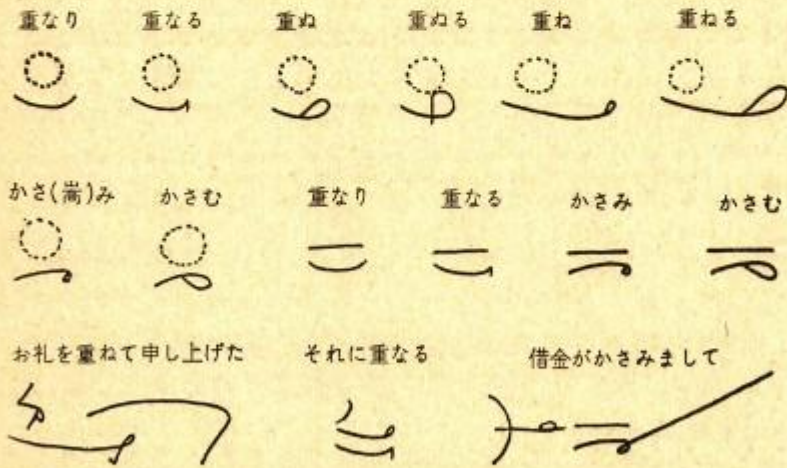 重なり 重なる 重ぬ 重ぬる 重ね 重ねる
かさ(嵩)み かさむ 重なり 重なる かさみ かさむ
お礼を重ねて申し上げた それに重なる 借金がかさみまして